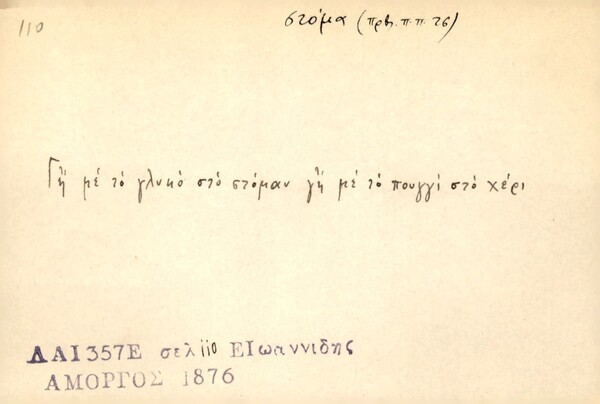 110
στόμα (πρβ. π.π. 76)
Γἢ μὲ τὸ γλυκὸ στὸ στόμαν γἢ μὲ τὸ πουγγὶ στὸ χέρι
ΔΑΙ357Ε σελ 110 ΕΙωαννιδης
ΑΜΟΡΓΟΣ 1876